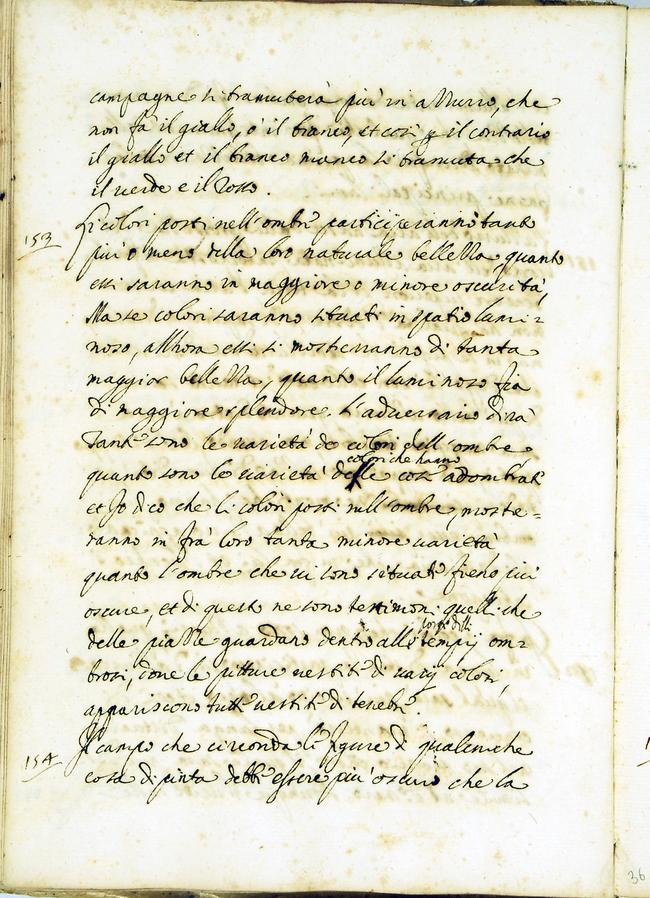 campagne si tramuterà più in azzurro, che
non fà il giallo, ò il bianco, et così p il contrario
il giallo et il bianco manco si tramuta che
il verde e il rosso.
153 Li colori posti nell'ombre participeranno tanto
più o meno della loro naturale bellezza quanto
essi saranno in maggiore o minore oscurità,
Ma se colori saranno situati in spatio lumi=
noso, allhora essi si mosterranno di tanta
maggior bellezza, quanto il luminoso fia
di maggiore splendore. L'adversario dirà
Tante sono le varietà de colori dell'ombre,
colori che hanno
quanto sono le varietà delle cose adombrate
et Io dico che li colori posti nell'ombre, moste=
ranno in frà loro tanta minore varietà
quanto l'ombre che vi sono situati fieno più
oscure, et di questo ne sono testimoni quelli che
delle piazze guardano dentro alli tempij om=
brosi, dove le pitture vestite di varij colori,
appariscono tutte vestite di tenebre.
154 Il campo che circonda le figure di qualunche
cosa dipinta debbe essere più oscuro che la
36